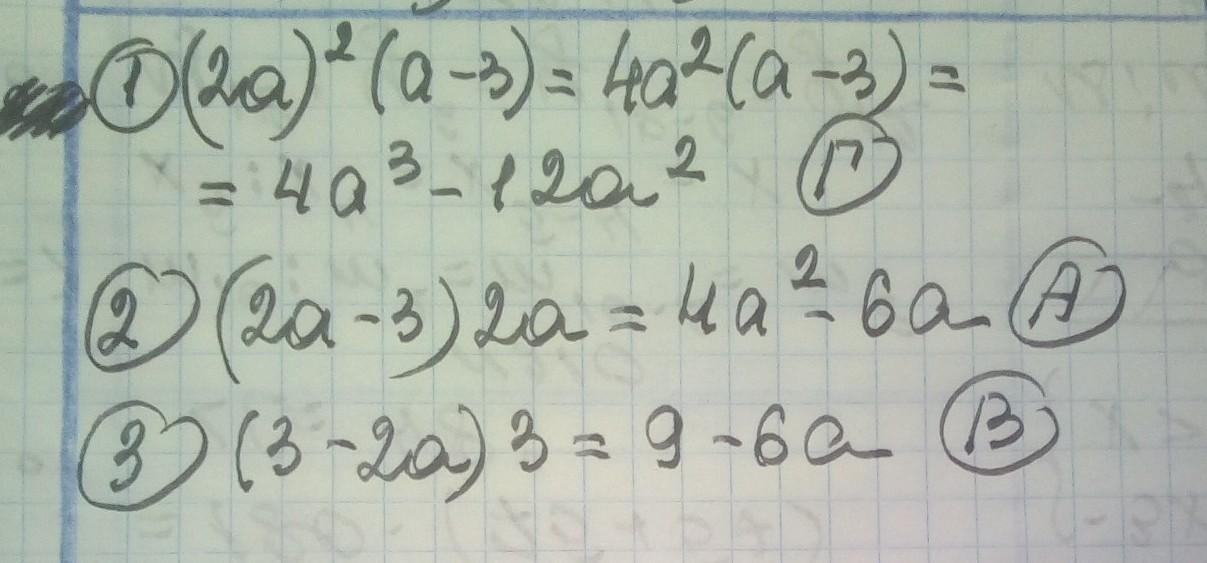 ① (2a)² (a-3) = 4a² (a-3) =
= 4a³ - 12a² Ⓖ
② (2a-3) 2a = 4a² - 6a Ⓐ
③ (3-2a) 3 = 9 - 6a Ⓑ